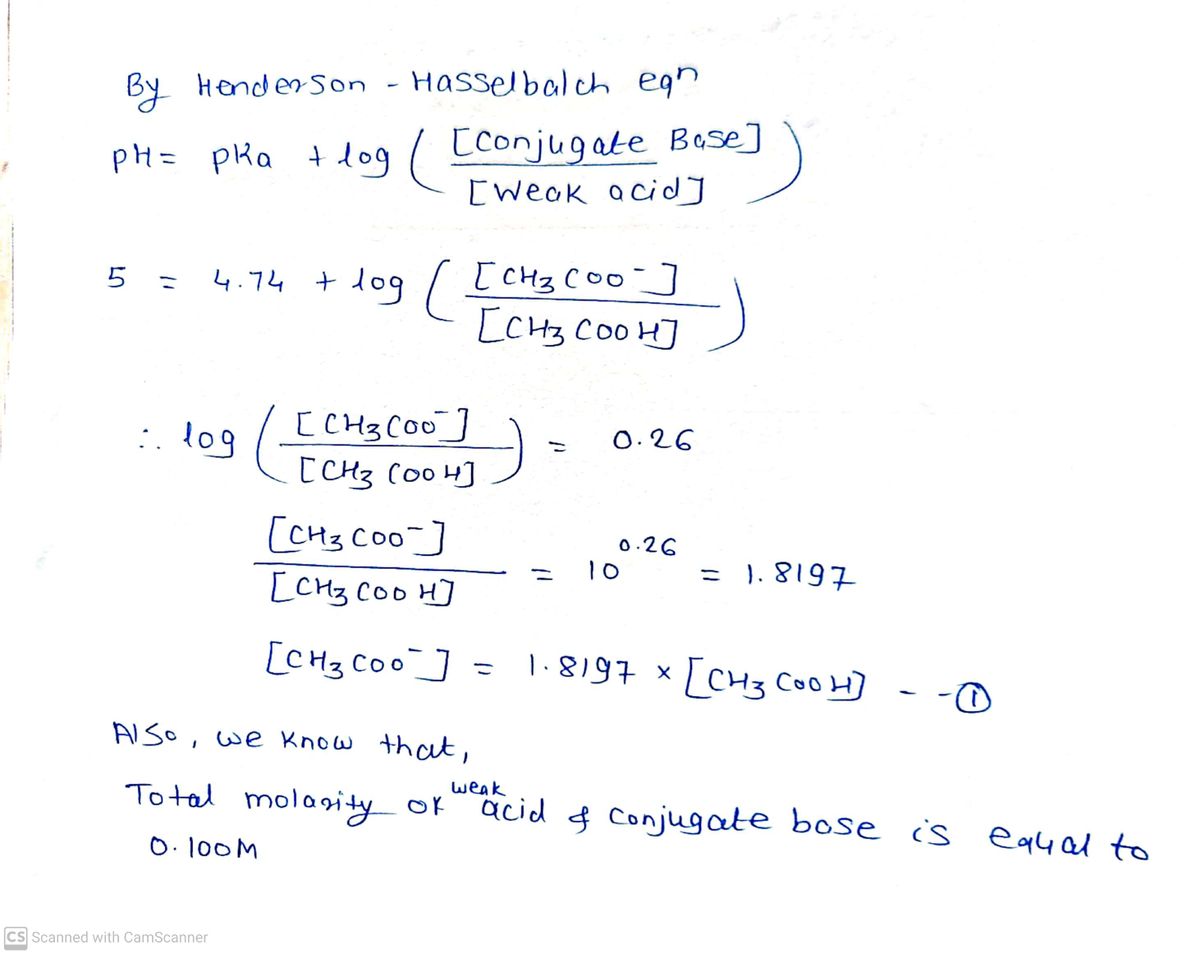 By Henderson - Hasselbalch eqn
pH = pKa + log ( [Conjugate Base] / [Weak acid] )
5 = 4.74 + log ( [CH3COO-] / [CH3COOH] )
∴ log ( [CH3COO-] / [CH3COOH] ) = 0.26
[CH3COO-] / [CH3COOH] = 10^0.26 = 1.8197
[CH3COO-] = 1.8197 × [CH3COOH] - - ①
Also, we know that,
Total molarity of weak acid & conjugate base is equal to
0.100M
CS Scanned with CamScanner